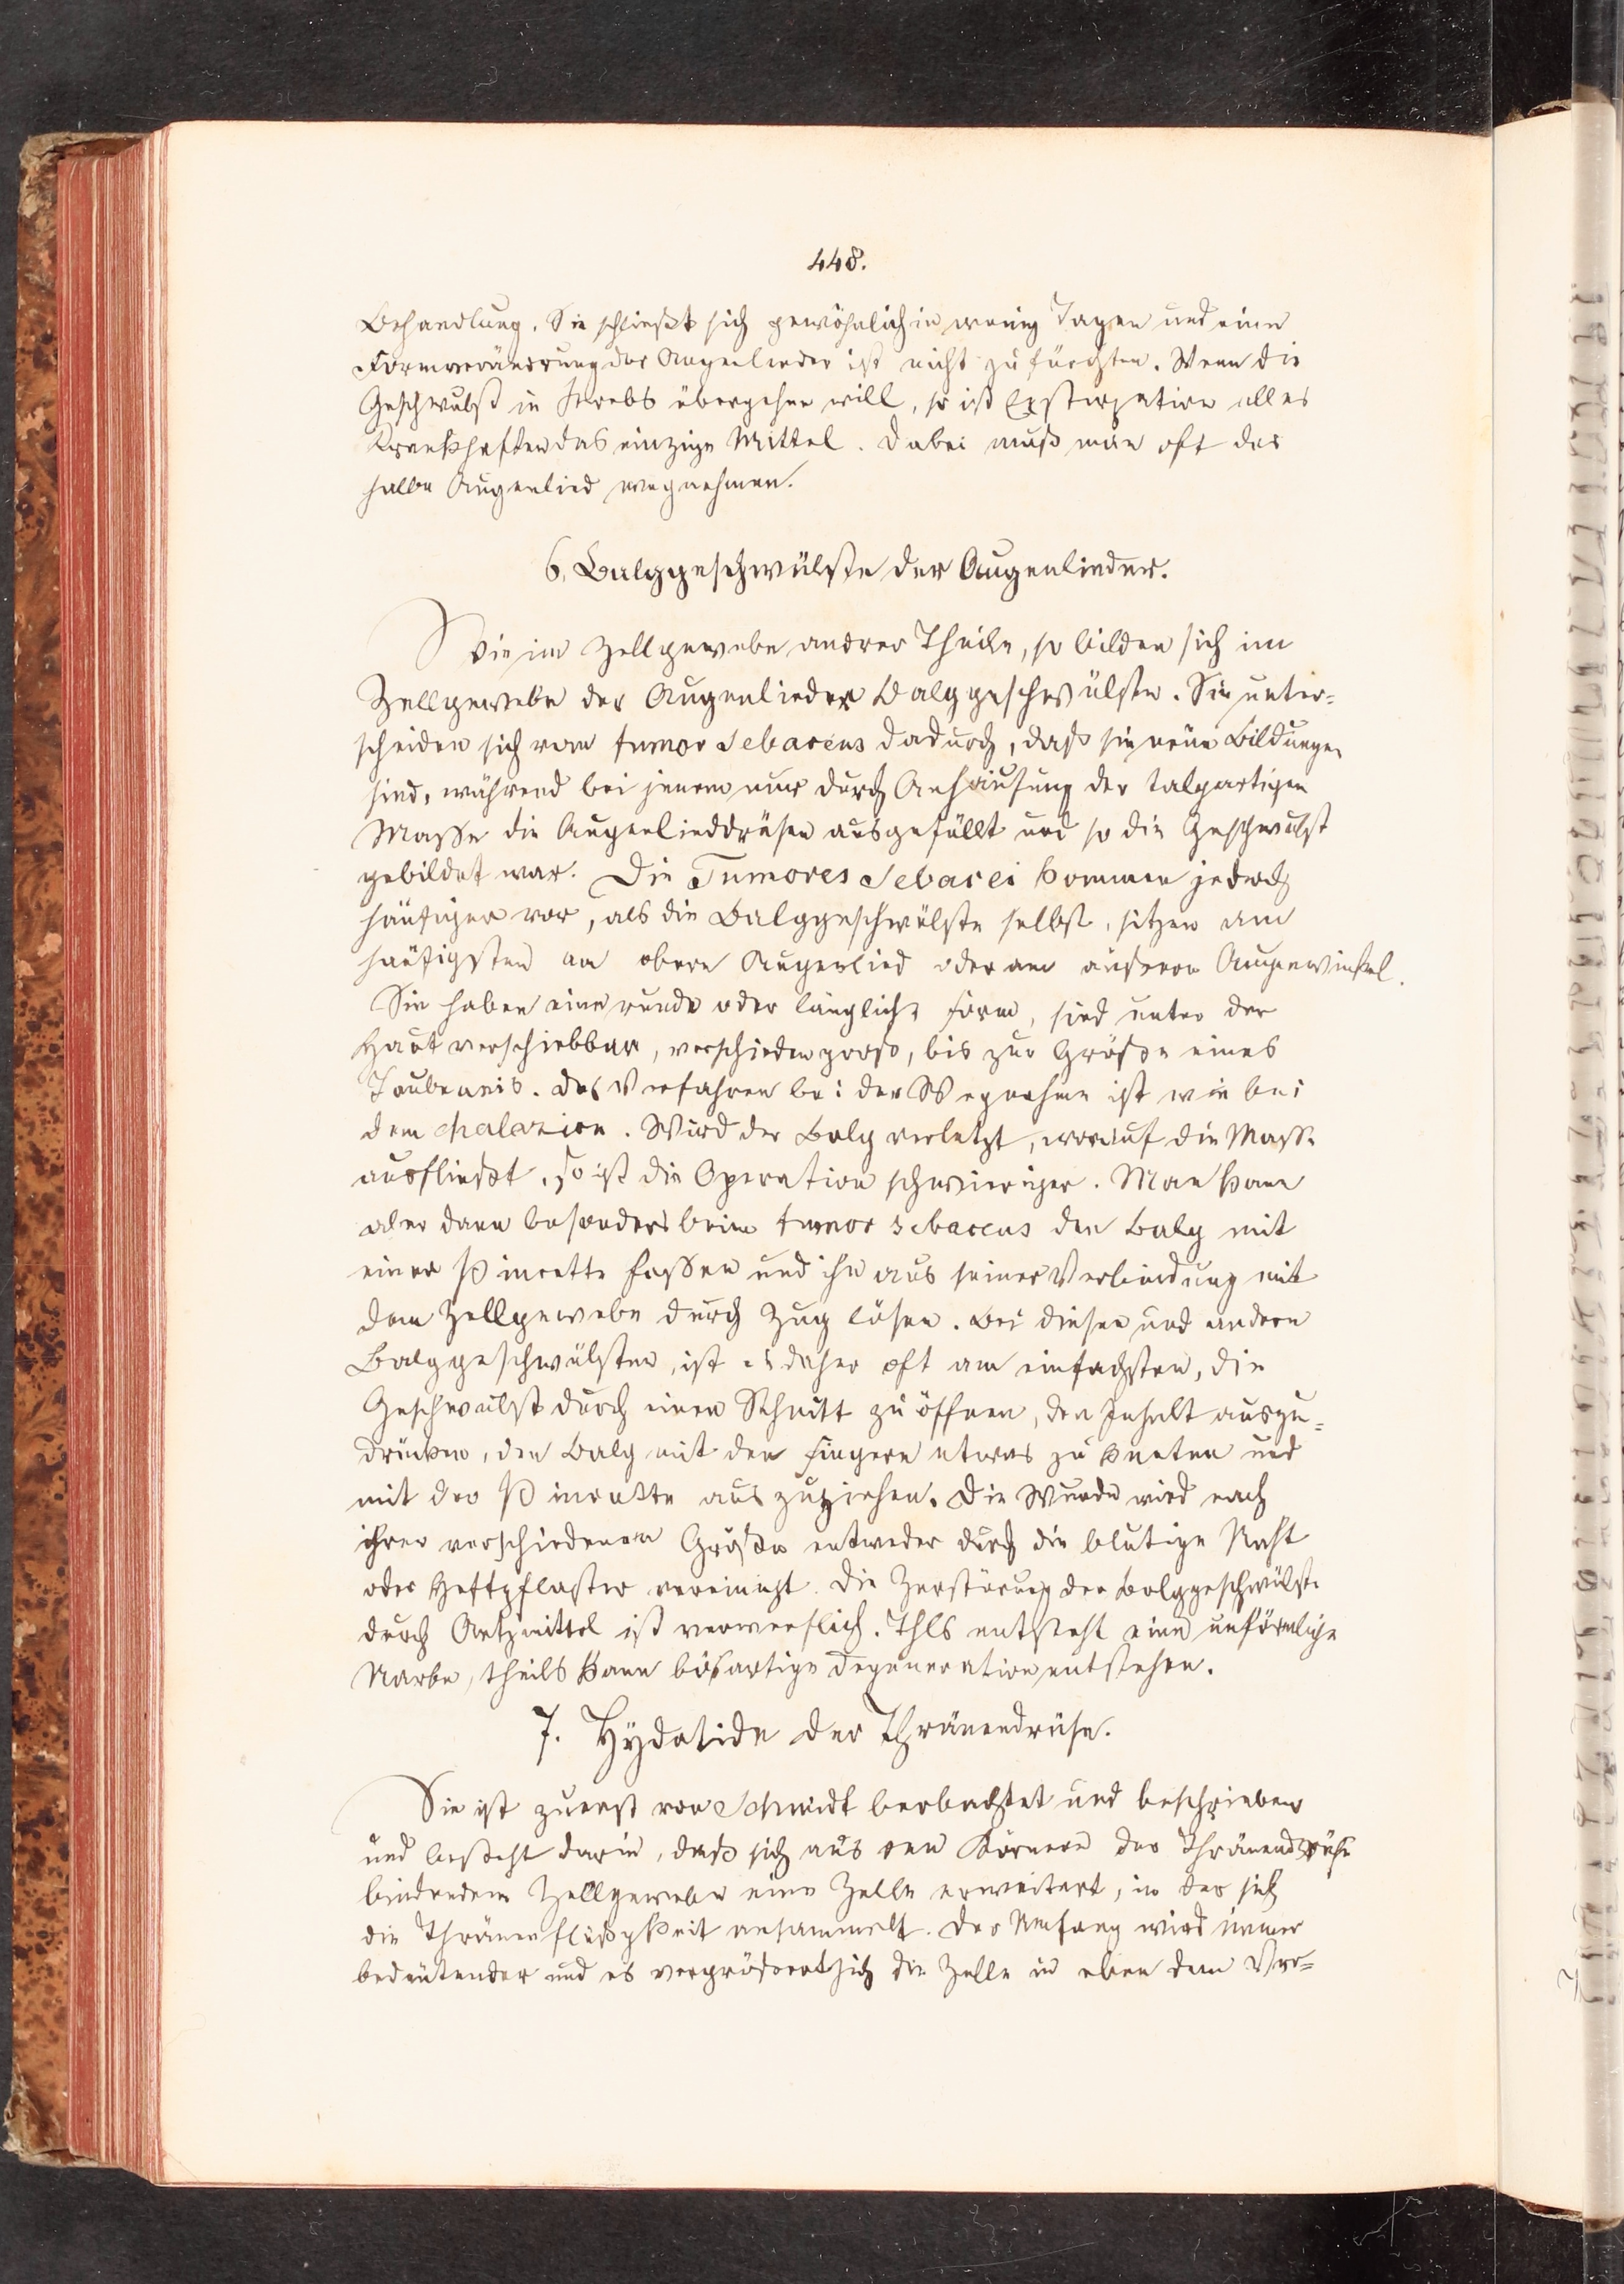 448.
Behandlung. Sie schließt sich gewöhnlich in wenig Tagen und eine
Formverändrung der Augenlieder ist nicht zu fürchten. Wenn die
Geschwulst in Krebs übergehen will, so ist Exstirpation alles
Krankhaften das einzige Mittel. Dabei muß man oft das
halbe Augenlied wegnehmen.
6. Balggeschwülste der Augenlieder.
Wie im Zellgewebe andrer Theile, so bilden sich im
Zellgewebe der Augenlieder Balggeschwülste. Sie unter-
scheiden sich vom tumor sebaceus dadurch, daß sie neue Bildungen
sind, während bei jenem nur durch Anhäufung der talgartigen
Masse die Augenlieddrüsen ausgefüllt und so die Geschwulst
gebildet war. Die Tumores Sebacei kommen jedoch
häufiger vor, als die Balggeschwülste selbst, sitzen am
häufigsten am obern Augenlied oder am äußeren Augenwinkel.
Sie haben eine runde oder längliche Form, sind unter der
Haut verschiebbar, verschieden groß, bis zur Größe eines
Taubeneis. Das Verfahren bei der Wegnahme ist wie bei
dem chalazion. Wird der Balg verletzt, worauf die Masse
ausfließt, so ist die Operation schwieriger. Man kann
aber dann besonders beim tumor sebaceus den Balg mit
einer Pincette fassen und ihn aus seiner Verbindung mit
dem Zellgewebe durch Zug lösen. Bei diesen und andern
Balggeschwülsten, ist es daher oft am einfachsten, die
Geschwulst durch einen Schnitt zu öffnen, den Inhalt auszu-
drücken, den Balg mit den Fingern etwas zu kneten und
mit der Pincette auszuziehen. Die Wunde wird nach
ihrer verschiedenen Größe entweder durch die blutige Naht
oder Heftpflaster vereinigt. Die Zerstörung der Balggeschwülste
durch Aetzmittel ist verwerflich. Thls entsteht eine unförmliche
Narbe, theils kann bösartige Degeneration entstehen.
7. Hydatide der Thränendrüse.
Sie ist zuerst von Schmidt beobachtet und beschrieben
und besteht darin, daß sich aus den Körnern der Thränendrüse
bindendem Zellgewebe eine Zelle erweitert, in der sich
die Thränenflüßigkeit ansammelt. Der Umfang wird immer
bedeutender und es vergrößert sich die Zelle in eben dem Ver-